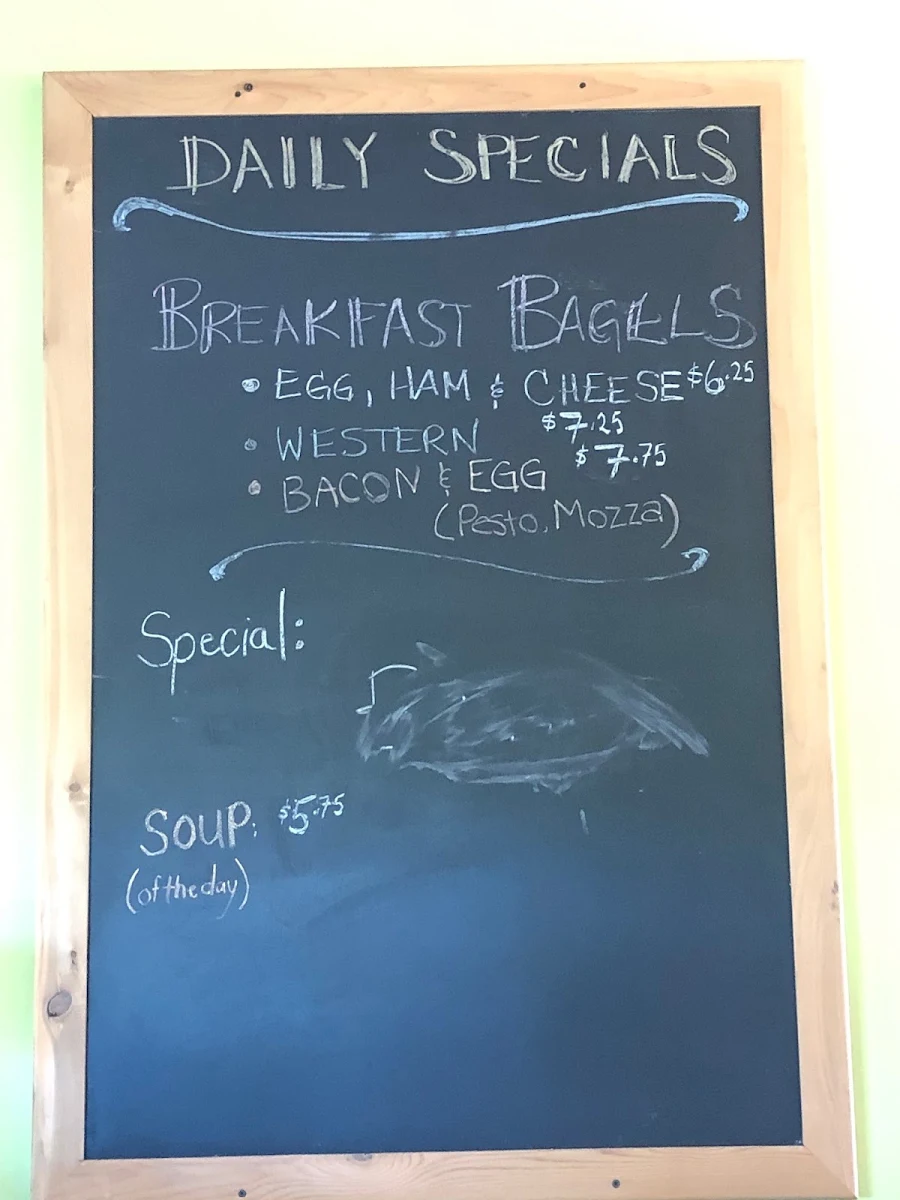 DAILY SPECIALS
BREAKFAST BAGELS
• EGG, HAM & CHEESE $6.25
• WESTERN $7.25
• BACON & EGG $7.75
(Pesto, Mozza)
Special:
SOUP: $5.75
(of the day)